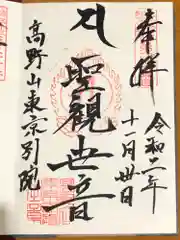 奉拝
令和二年
十一月廿日
聖観世音
高野山東京別院